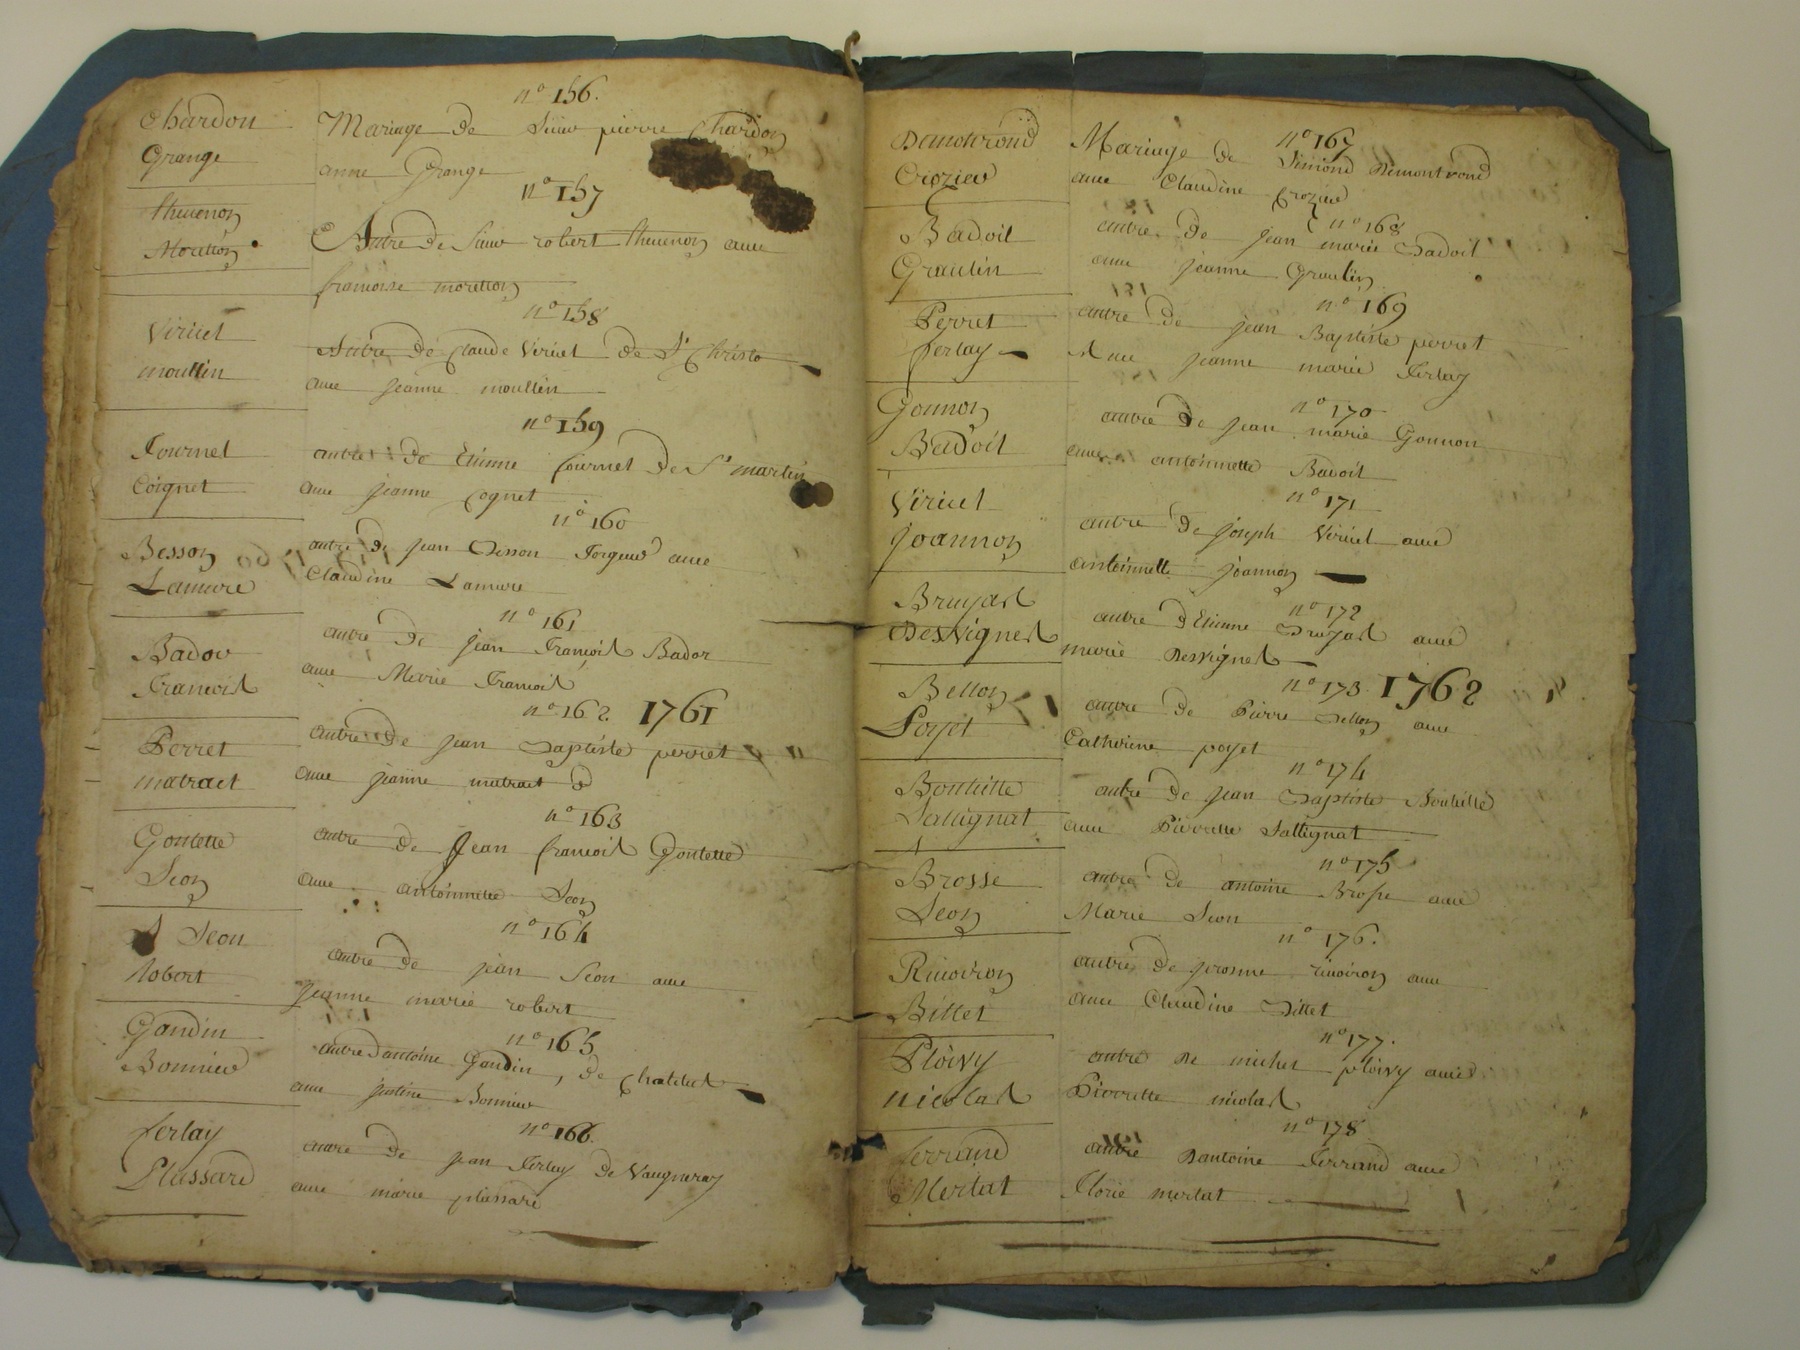 n° 156.
Chardon
Grange
Mariage de Sieur pierre Chardon
anne Grange
n° 157
thevenon
Moretton
Autre de Sieur robert thevenon avec
francoise moretton
n° 158
Viricel
moullin
Autre de Claude Viricel de St Christo
avec jeanne moullin
n° 159
Fournel
Coignet
autre de Etienne fournel de St martin
avec jeanne Cognet
n° 160
Besson
Lamure
autre de jean Besson forgeur avec
Claudine Lamure
n° 161
Bador
Francois
autre de jean Francois Bador
avec Marie Francois
n° 162 1761
Perret
matract
autre de jean Baptiste perret
avec jeanne matract
n° 163
Goutette
Seon
autre de Jean francois Goutette
avec antoinnette Seon
n° 164
Seon
Robert
autre de jean Seon avec
jeanne marie robert
n° 165
Gandin
Bonnier
autre dantoine Gandin, de Chatelus
avec justine Bonnier
n° 166.
ferlay
Plassard
autre de jean Ferlay de Vaugneray
avec marie plassard
n° 167
Demontrond
Crozier
Mariage de Simond Demontrond
avec Claudine Crozier
n° 168
Badoil
Graulin
autre de jean marie Badoil
avec jeanne Graulin
n° 169
Perret
ferlay
autre de jean Baptiste perret
Avec jeanne marie Ferlay
n° 170
Gonnon
Badoil
autre de jean marie Gonnon
avec antoinnette Badoil
n° 171
Viricel
joannon
autre de joseph Viricel avec
antoinnette joannon
n° 172
Bruyas
Desvignes
autre dEtienne Bruyas avec
marie Desvignes
n° 173 1762
Bellon
Poyet
autre de Pierre Bellon avec
Catherine poyet
n° 174
Bouteille
Sallignat
autre de jean Baptiste Bouteille
avec Pierrette Sallignat
n° 175
Brosse
Seon
autre de antoine Brosse avec
Marie Seon
n° 176.
Rivoiron
Billet
autre de jerosme rivoiron avec
avec Claudine Billet
n° 177.
Ploivy
nicolas
autre de michel ploivy avec
Pierrette nicolas
n° 178
ferrand
Merlat
autre Dantoine Ferrand avec
florie merlat